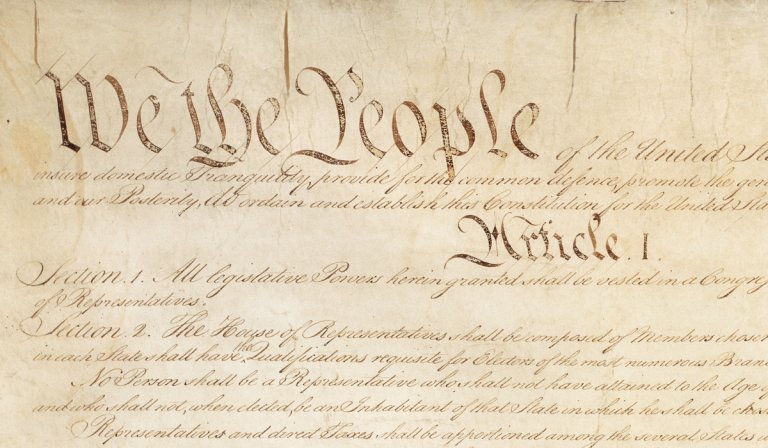 We the People of the United Sta
insure domestic Tranquility, provide for the common defence, promote the gen
and our Posterity, do ordain and establish this Constitution for the United Sta
Article. I.
Section. 1. All legislative Powers herein granted shall be vested in a Congre
of Representatives.
Section. 2. The House of Representatives shall be composed of Members chosen
in each State shall have the Qualifications requisite for Electors of the most numerous Bran
No Person shall be a Representative who shall not have attained to the Age o
and who shall not, when elected, be an Inhabitant of that State in which he shall be chose
Representatives and direct Taxes shall be apportioned among the several States